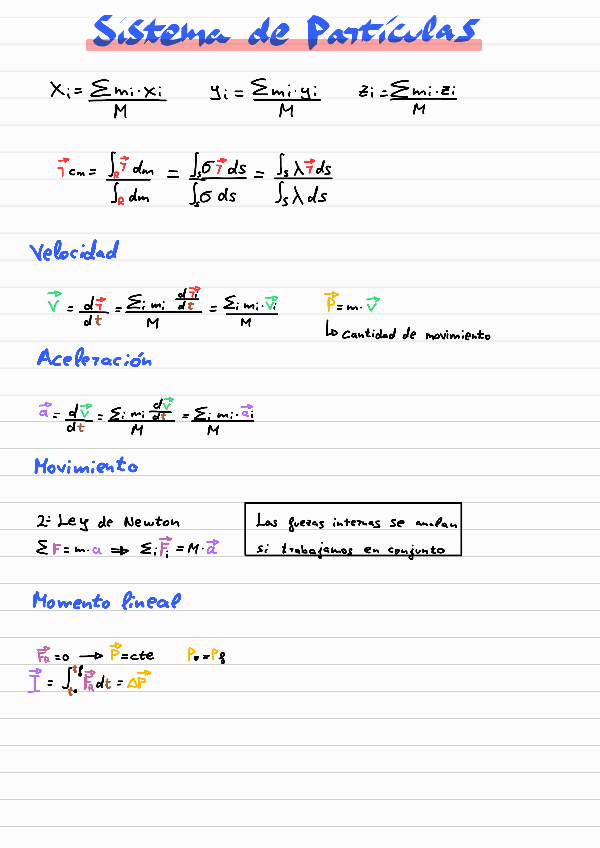 Sistema de Partículas
Xi = ∑mi·xi / M    yi = ∑mi·yi / M    zi = ∑mi·zi / M
r⃗cm = ∫R r⃗ dm / ∫R dm = ∫s σ r⃗ ds / ∫s σ ds = ∫s λ r⃗ ds / ∫s λ ds
Velocidad
v⃗ = dr⃗/dt = ∑i mi dr⃗i/dt / M = ∑i mi·v⃗i / M    P⃗ = m·v⃗
↳ cantidad de movimiento
Aceleración
a⃗ = dv⃗/dt = ∑i mi dv⃗/dt / M = ∑i mi·a⃗i / M
Movimiento
2ª Ley de Newton
∑F = m·a ⇒ ∑i F⃗i = M·a⃗
Las fuerzas internas se anulan
si trabajamos en conjunto
Momento lineal
F⃗R = 0 → P⃗ = cte    Po = Pf
I⃗ = ∫to^tf F⃗R dt = ΔP⃗